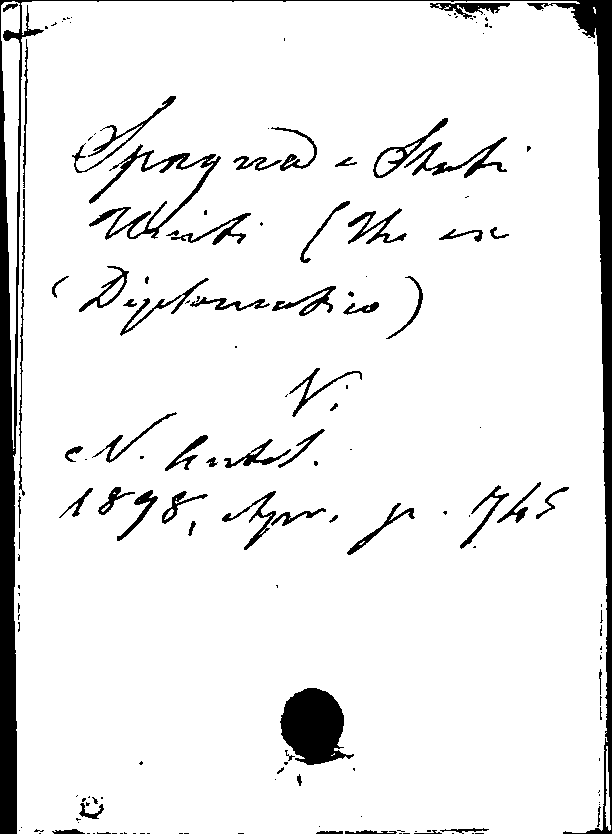 Spagna e Stati
Uniti (Un ex
(Diplomatico)
V.
N. Antol.
1898, Apr. p. 745